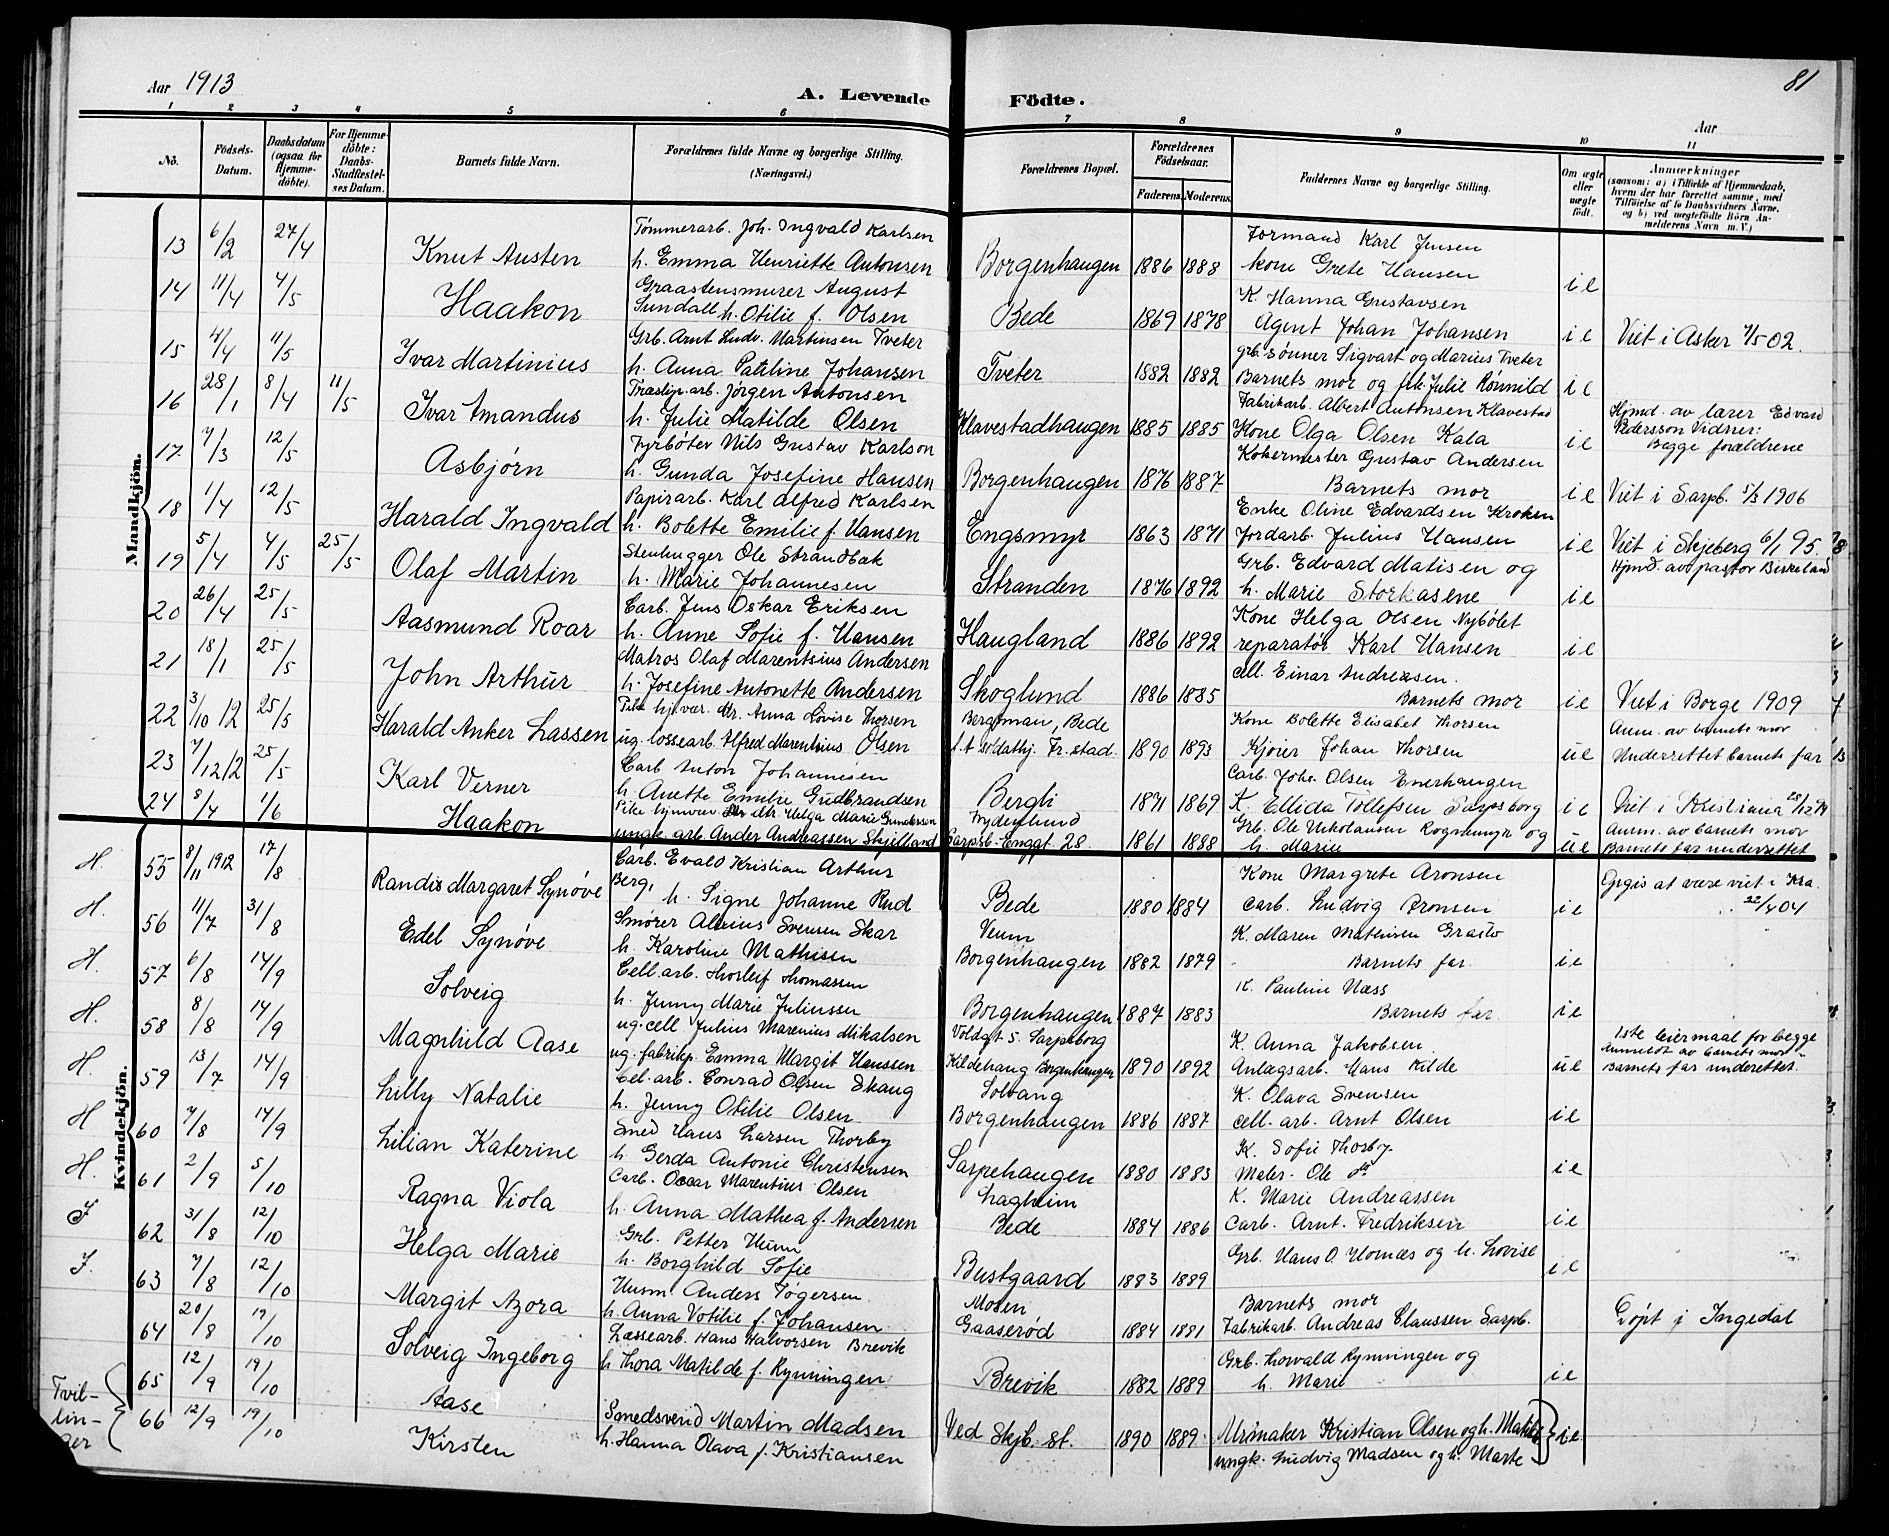 Aar 1913
A. Levende Födte.
81
Aar
1 2 3 4 5 6 7 8 9 10 11
No.
Födsels-Datum.
Daabsdatum (ogsaa for Hjemme-döbte).
For Hjemme-döbte: Daabs-Stadfæstel-ses Datum.
Barnets fulde Navn.
Forældrenes fulde Navne og borgerlige Stilling. (Næringsvei.)
Forældrenes Bopæl.
Forældrenes Födselsaar.
Faderens. Moderens.
Faddernes Navne og borgerlige Stilling.
Om ægte eller uægte födt.
Anmærkninger (saasom: a) i Tilfælde af Hjemmedaab, hvem der har forrettet samme, med Tilföielse af to Daabsvidners Navne. og b) ved uægtefödte Börn An-melderens Navn m. V.)
Mandkjön.
Tømmerarb. Joh. Ingvald Karlsen Formand Karl Jensen
13 6/2 27/4 Knut Austen h. Emma Henriette Antonsen Borgenhaugen 1886 1888 kone Grete Hansen i e
Graastensmurer August K. Hanna Gustavsen
14 11/4 4/5 Haakon Sundall h. Otilie f. Olsen Bede 1869 1878 Agent Johan Johansen i e Viet i Asker 02.
Grb. Arnt Ludv. Martinsen Tveter grb. sønner Sigvart og Marius Tveter
15 4/4 11/5 Ivar Martinius h. Anna Pauline Johansen Tveter 1882 1882 Barnets mor og frk. Julie Rønnild i e
Træslip.arb. Jörgen Antonsen Fabrikarb. Albert Antonsen Klavestad Hjmd. av lærer Edvard
16 28/1 8/4 11/5 Ivar Amandus h. Julie Matilde Olsen Klavestadhaugen 1885 1885 Kone Olga Olsen Kala i e Pedersson Vidner:
Fyrbøter Nils Gustav Karlson Kokermester Gustav Andersen Begge forældrene
17 7/3 12/5 Asbjørn h. Gunda Josefine Hansen Borgenhaugen 1876 1887 Barnets mor i e Viet i Sarpb. 5/3 1906
Papirarb. Karl Alfred Karlsen Enke Oline Edvardsen Kroken
18 1/4 12/5 Harald Ingvald h. Bolette Emilie f. Hansen Engsmyr 1863 1871 Jordarb. Julius Hansen i e Viet i Skjeberg 6/1 95.
Stenhugger Ole Strandbæk Grb. Edvard Matisen og Hjmd. av pastor Birkeland
19 5/4 4/5 25/5 Olaf Martin h. Marie Johannesen Stranden 1876 1892 h. Marie Storkasene i e
Carb. Jens Oskar Eriksen Kone Helga Olsen Nybølet
20 26/4 25/5 Aasmund Roar h. Anne Sofie f. Hansen Haugland 1886 1892 reparatør Karl Hansen i e
Matros Olaf Marentsius Andersen cell. Einar Andreasen.
21 18/1 25/5 John Arthur h. Josefine Antonette Andersen Skoglund 1886 1885 Barnets mor i e Viet i Borge 1909
Pike hj.vær. Anna Lovise Thorsen Bergtman, Bede Kone Bolette Elisabet Thorsen Anm. av barnets mor
22 3/10 12 25/5 Harald Anker Lassen ug. lossearb. Alfred Marentius Olsen f. t. soldathj. Fr.stad. 1890 1893 Kjører Johan Thorsen u e Underrettet barnets far
Carb Anton Johannesen Carb. Johs. Olsen Enerhaugen
23 7/12 12 25/5 Karl Verner h. Anette Emilie Gudbrandsen Bergli 1871 1869 K. Ellida Tollefsen Sarpsborg i e Viet i Kristiania
Pike Helga Marie Gundersen Fryderlund Grb. Ole Nikolausen Rognemyr og Anm. av barnets mor
24 8/4 1/6 Haakon ungk. arb. Ander Andreassen Skjelland Sarpsb. Enggt. 28. 1861 1888 h. Marie u e Barnets far underrettet
Kvindekjön.
Carb. Evald Kristian Arthur Kone Margrete Aronsen Opgis at være viet i Kra.
H. 55 8/11 1912 17/8 Randis Margaret Synøve Berg, h. Signe Johanne Rud Bede 1880 1884 Carb. Ludvig Aronsen i e 22/4 04
Smører Alvius Svensen Skar Veum K. Maren Mathisen Graslo
H. 56 11/7 31/8 Edel Synøve h. Karoline Mathisen Borgenhaugen 1882 1879 Barnets far. i e
Cell.arb. Thorleif Thomassen K. Pauline Næss
H. 57 6/8 14/9 Solveig h. Jenny Marie Juliussen Borgenhaugen 1887 1883 Barnets far. i e
ug. cell Julius Marenius Mikalsen Voldgt 5. Sarpsborg K. Anna Jakobsen. 1ste leiermaal for begge
H. 58 8/8 14/9 Magnhild Aase ug. fabrikp. Emma Margit Hanssen Kildehaug Borgenhaugen 1890 1892 Anlægsarb. Hans Kilde u e Anmeldt av barnets mor
Barnets far underettet.
Cel.arb. Conrad Olsen Skaug Solvang K. Olava Svensen
H. 59 13/7 14/9 Lilly Natalie h. Jenny Otilie Olsen Borgenhaugen 1886 1887 cell. arb. Arnt Olsen i e
Smed Hans Larsen Thorby K. Sofie Thorby.
H 60 7/8 14/9 Lilian Katerine h. Gerda Antonie Christensen Sarpehaugen 1880 1883 Maler. Ole do i e
Carb. Oscar Marentius Olsen Lagheim K. Marie Andreassen
H. 61 2/9 5/10 Ragna Viola h. Anna Mathea f. Andersen Bede 1884 1886 Carb. Arnt. Fredriksen i e
Grb. Petter Hunn Grb. Hans O. Homæs og h. Lovise
I 62 31/8 12/10 Helga Marie h. Borghild Sofie Bustgaard 1883 1889 i e
Husm Anders Togersen. Mosen Barnets mor
I. 63 7/8 12/10 Margit Azora h. Anna Votilie f. Johansen Gaaserød 1884 1891 Fabrikarb. Andreas Claussen Sarpb. Døpt i Ingedal
Lassearb. Hans Halvorsen Brevik Grb. Thorvald Rynningen og
64 20/8 19/10 Solveig Ingeborg h Thora Matilde f. Rynningen Brevik 1882 1889 h. Marie i e
Tvil-lin-ger
65 12/9 19/10 Aase Smedsvend Martin Madsen Ved Skjb. st. 1890 1889 Urmaker Kristian Olsen og h. Matilde i e
66 12/9 19/10 Kirsten h. Hanna Olava f. Kristiansen ungk. Ludvig Madsen og h. Marte